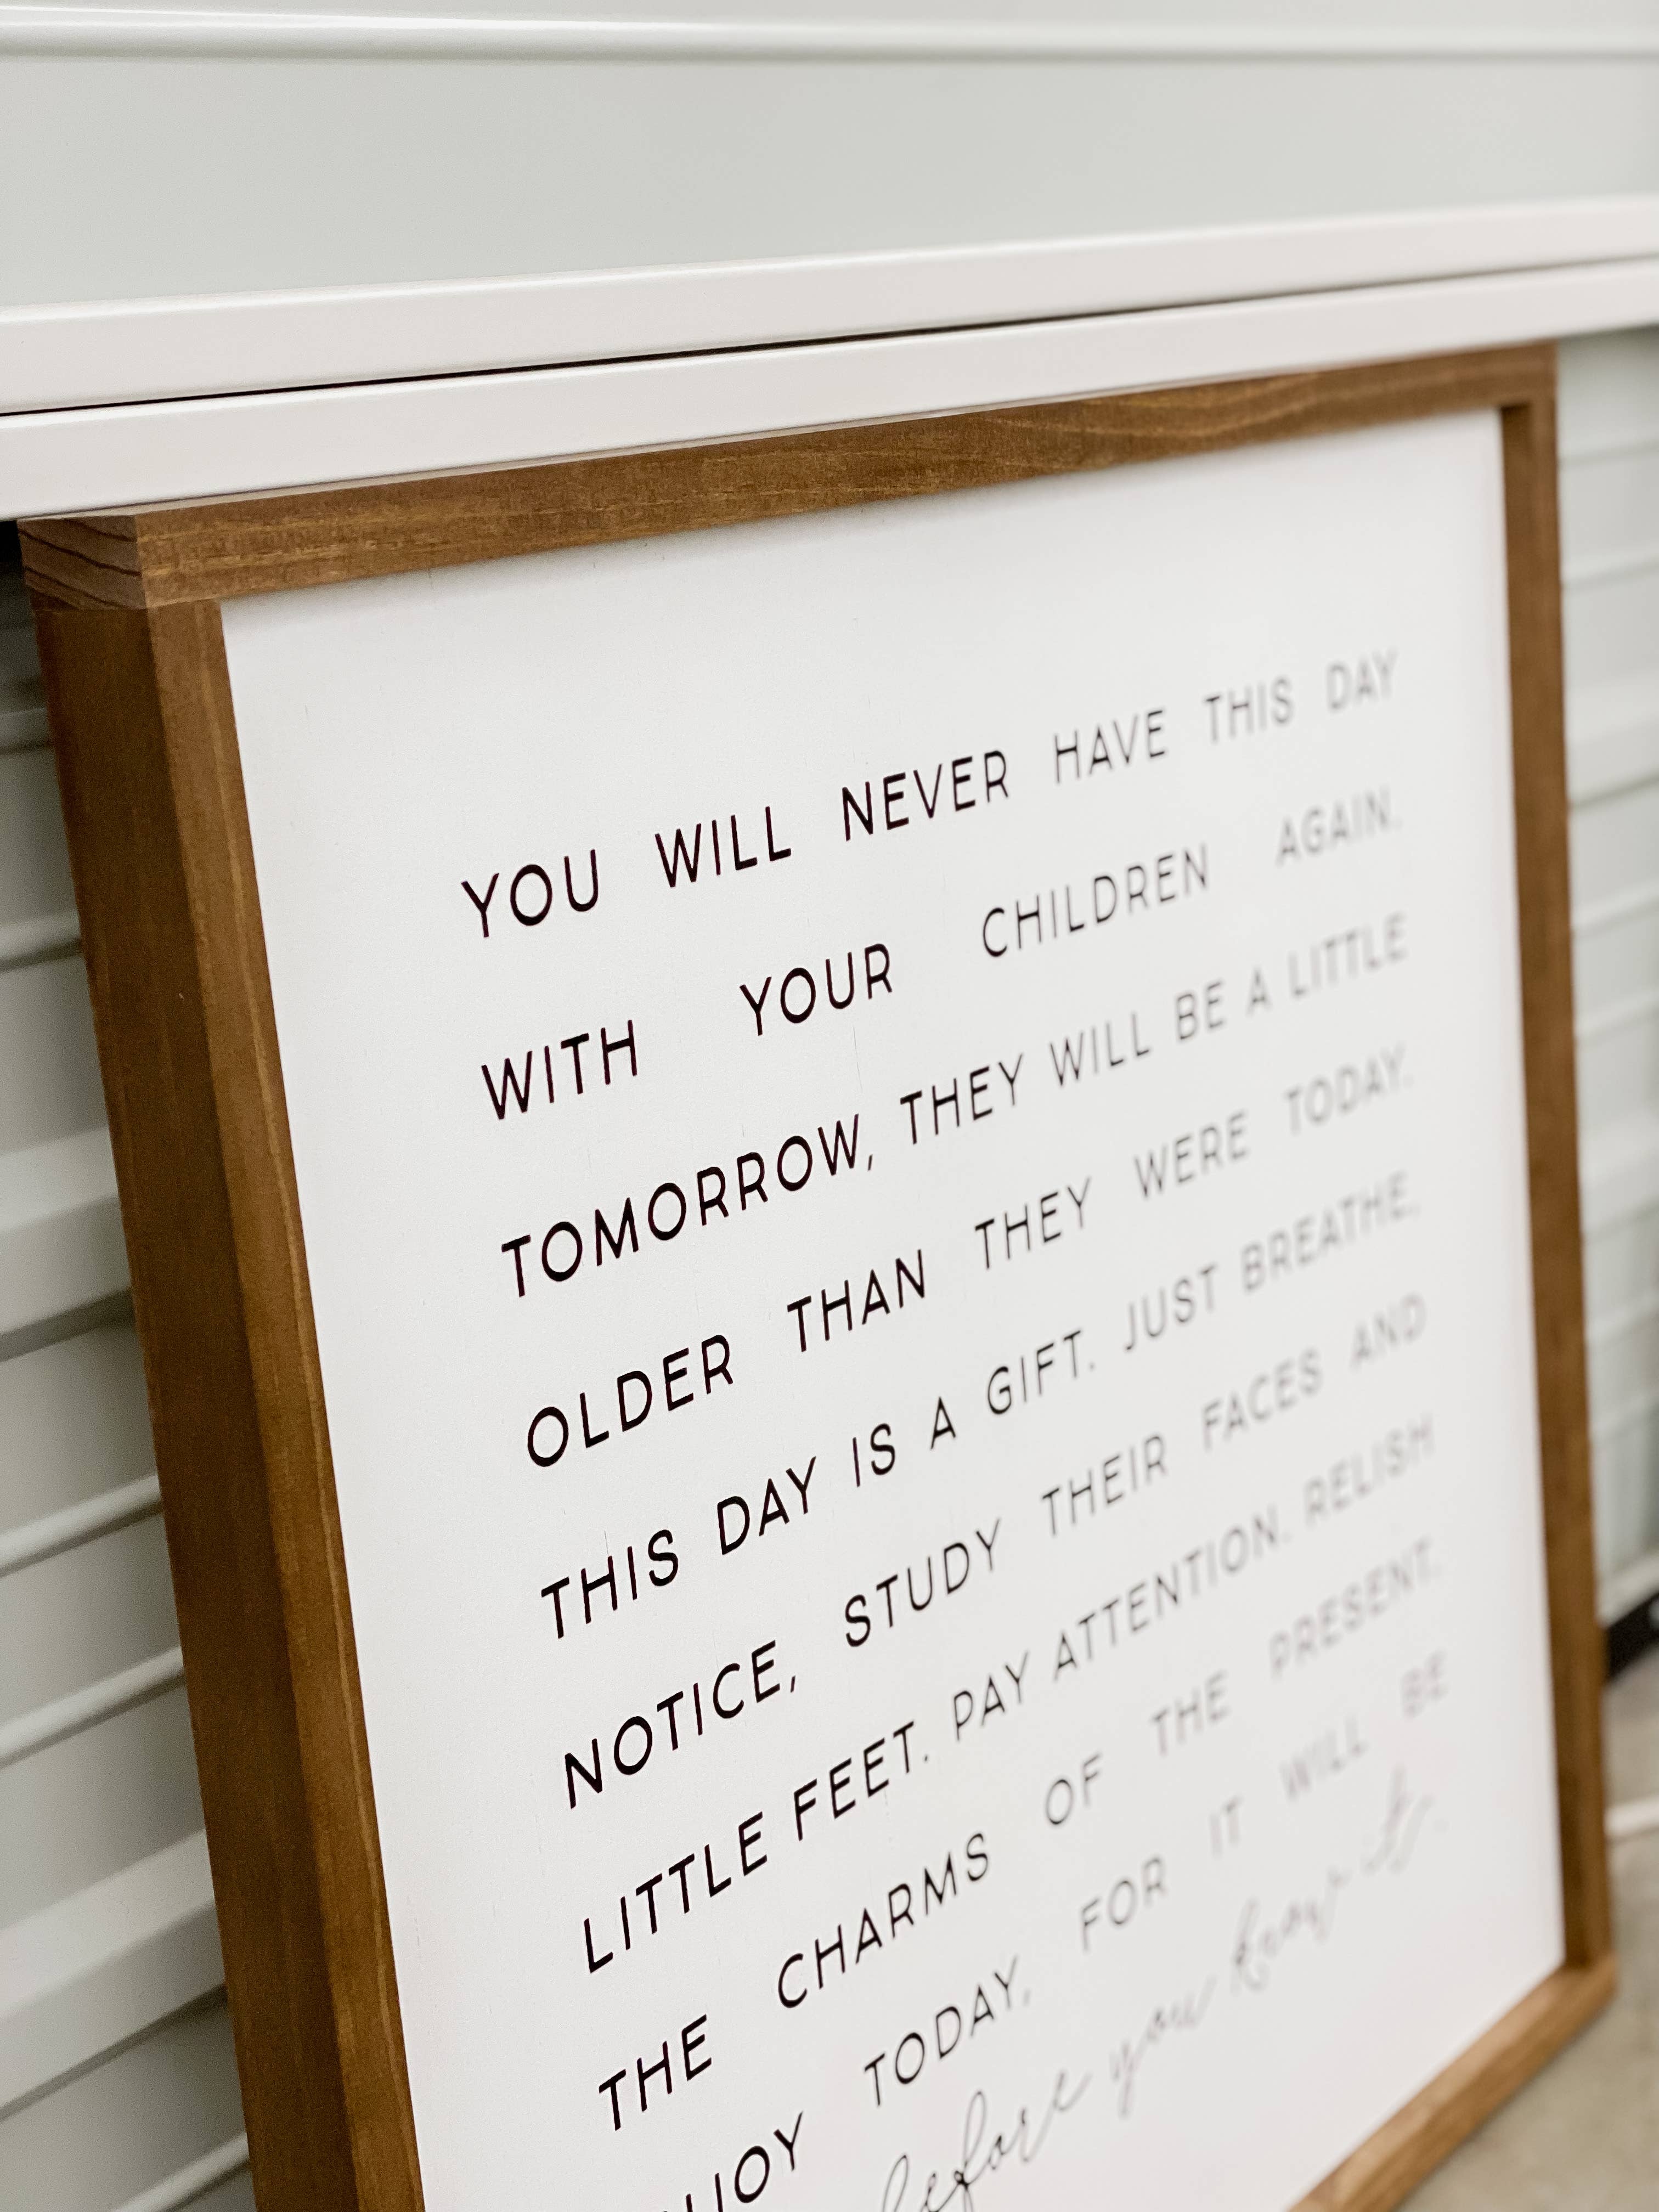 YOU WILL NEVER HAVE THIS DAY
WITH YOUR CHILDREN AGAIN.
TOMORROW, THEY WILL BE A LITTLE
OLDER THAN THEY WERE TODAY.
THIS DAY IS A GIFT. JUST BREATHE,
NOTICE, STUDY THEIR FACES AND
LITTLE FEET. PAY ATTENTION. RELISH
THE CHARMS OF THE PRESENT.
TODAY, FOR IT WILL BE
before you know it.